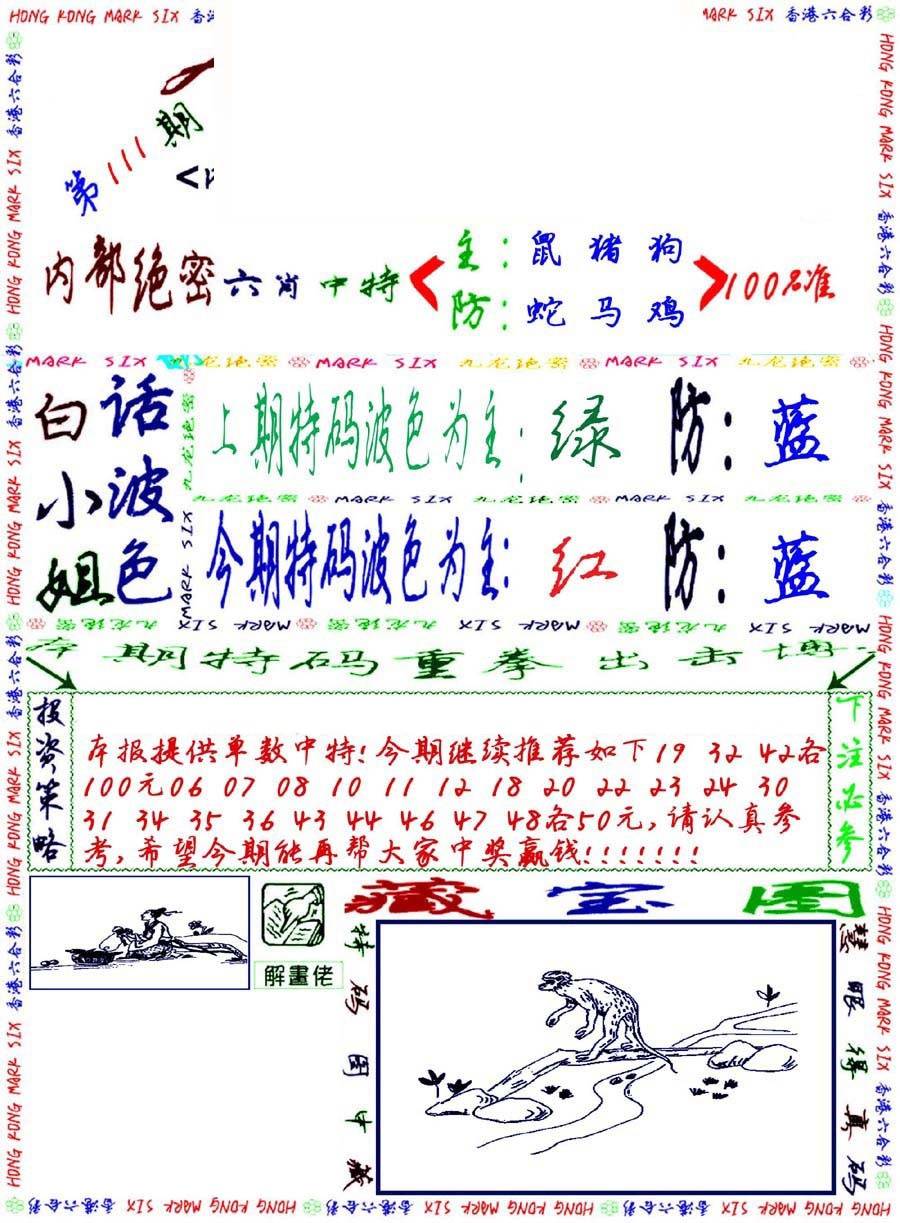 HONG KONG MARK SIX 香港
MARK SIX 香港六合彩
第111期
内部绝密六肖中特
主：鼠 猪 狗
防：蛇 马 鸡
100%准
MARK SIX 九龙绝密 MARK SIX 九龙绝密 MARK SIX 九龙绝密
白话
小波
姐色
上期特码波色为主：绿 防：蓝
九龙绝密 MARK SIX 九龙绝密 MARK SIX 九龙绝密
今期特码波色为主：红 防：蓝
九龙绝密 MARK SIX 九龙绝密 MARK SIX 九龙绝密 MARK SIX
本期特码重拳出击博
投资策略
本报提供单数中特!今期继续推荐如下19 32 42各
100元06 07 08 10 11 12 18 20 22 23 24 30
31 34 35 36 43 44 46 47 48各50元,请认真参
考,希望今期能再帮大家中奖赢钱!!!!!!!
下注必参
解畫佬
藏宝图
特码图中藏
慧眼得真码
HONG KONG MARK SIX 香港六合彩 HONG KONG MARK SIX 香港六合彩 HONG KONG MARK SIX 香港六合彩